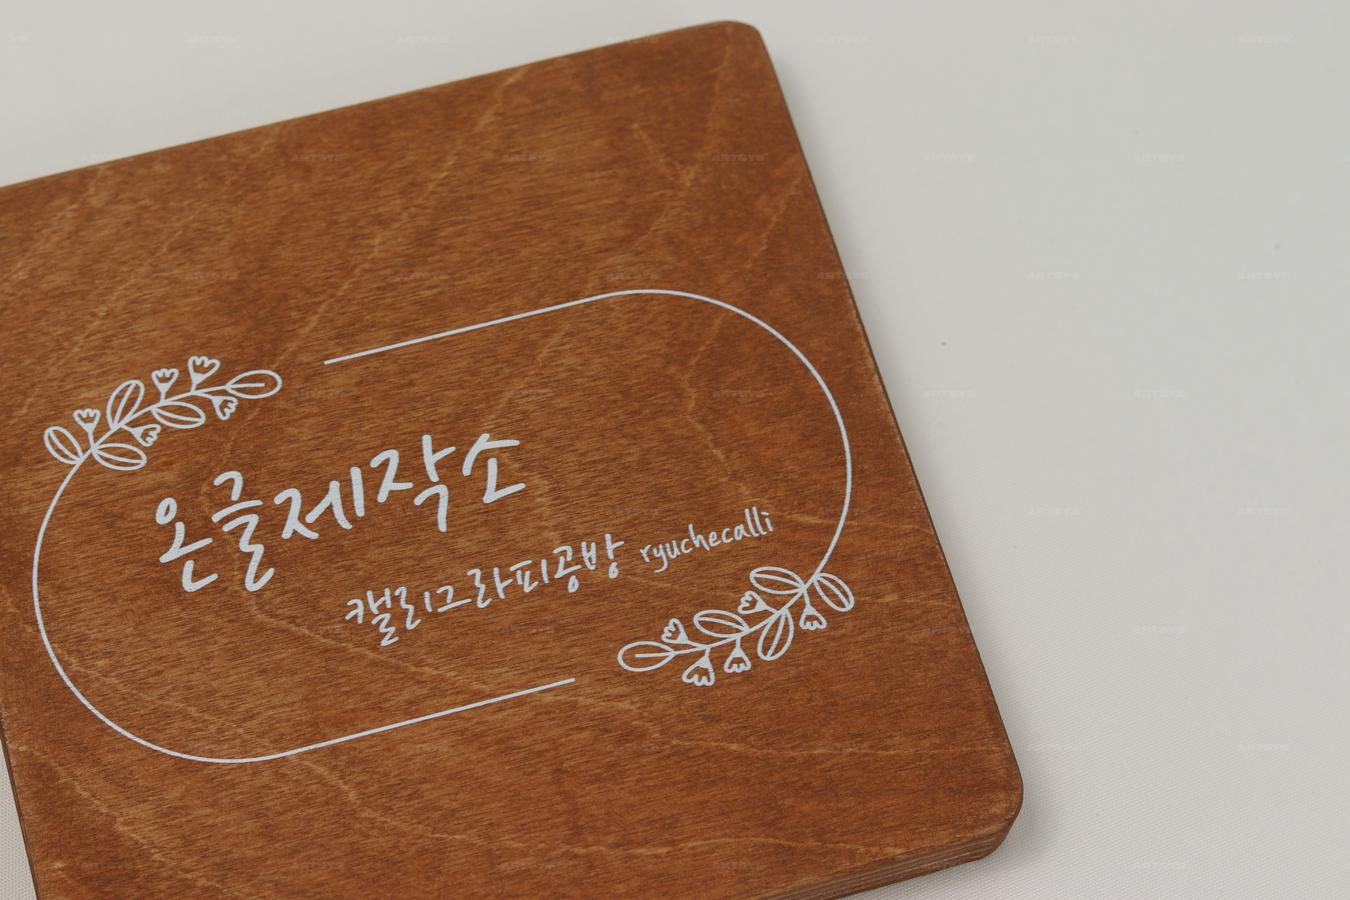 온글제작소
캘리그라피공방 ryuchecalli
ARTSYS